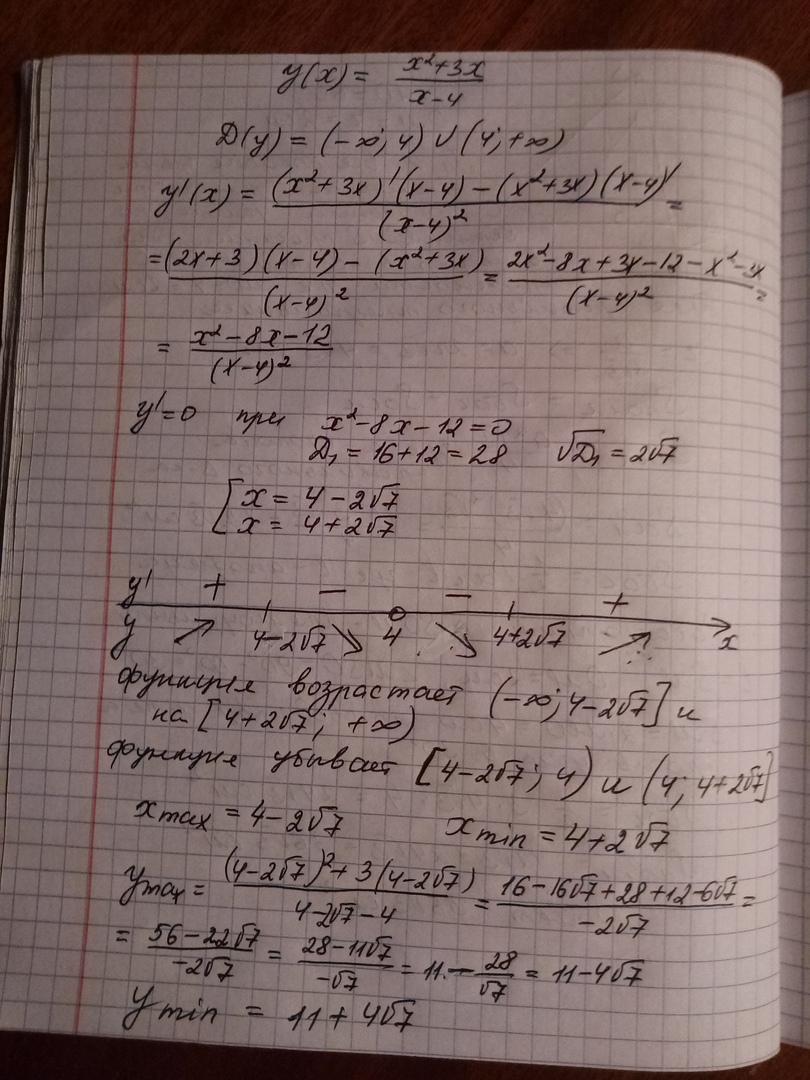 y(x) = (x²+3x)/(x-4)
D(y) = (-∞; 4) ∪ (4; +∞)
y'(x) = ((x²+3x)'(x-4) - (x²+3x)(x-4)')/(x-4)² =
= ((2x+3)(x-4) - (x²+3x))/(x-4)² = (2x²-8x+3x-12-x²-3x)/(x-4)² =
= (x²-8x-12)/(x-4)²
y'=0 при x²-8x-12=0
D₁ = 16+12=28 √D₁ = 2√7
[ x = 4-2√7
x = 4+2√7
y' + - - +
y 4-2√7 4 4+2√7 x
функция возрастает (-∞; 4-2√7] и
на [4+2√7; +∞)
функция убывает [4-2√7; 4) и (4; 4+2√7]
xmax = 4-2√7 xmin = 4+2√7
ymax = ((4-2√7)²+3(4-2√7))/(4-2√7-4) = (16-16√7+28+12-6√7)/(-2√7) =
= (56-22√7)/(-2√7) = (28-11√7)/(-√7) = 11 - 28/√7 = 11-4√7
ymin = 11+4√7